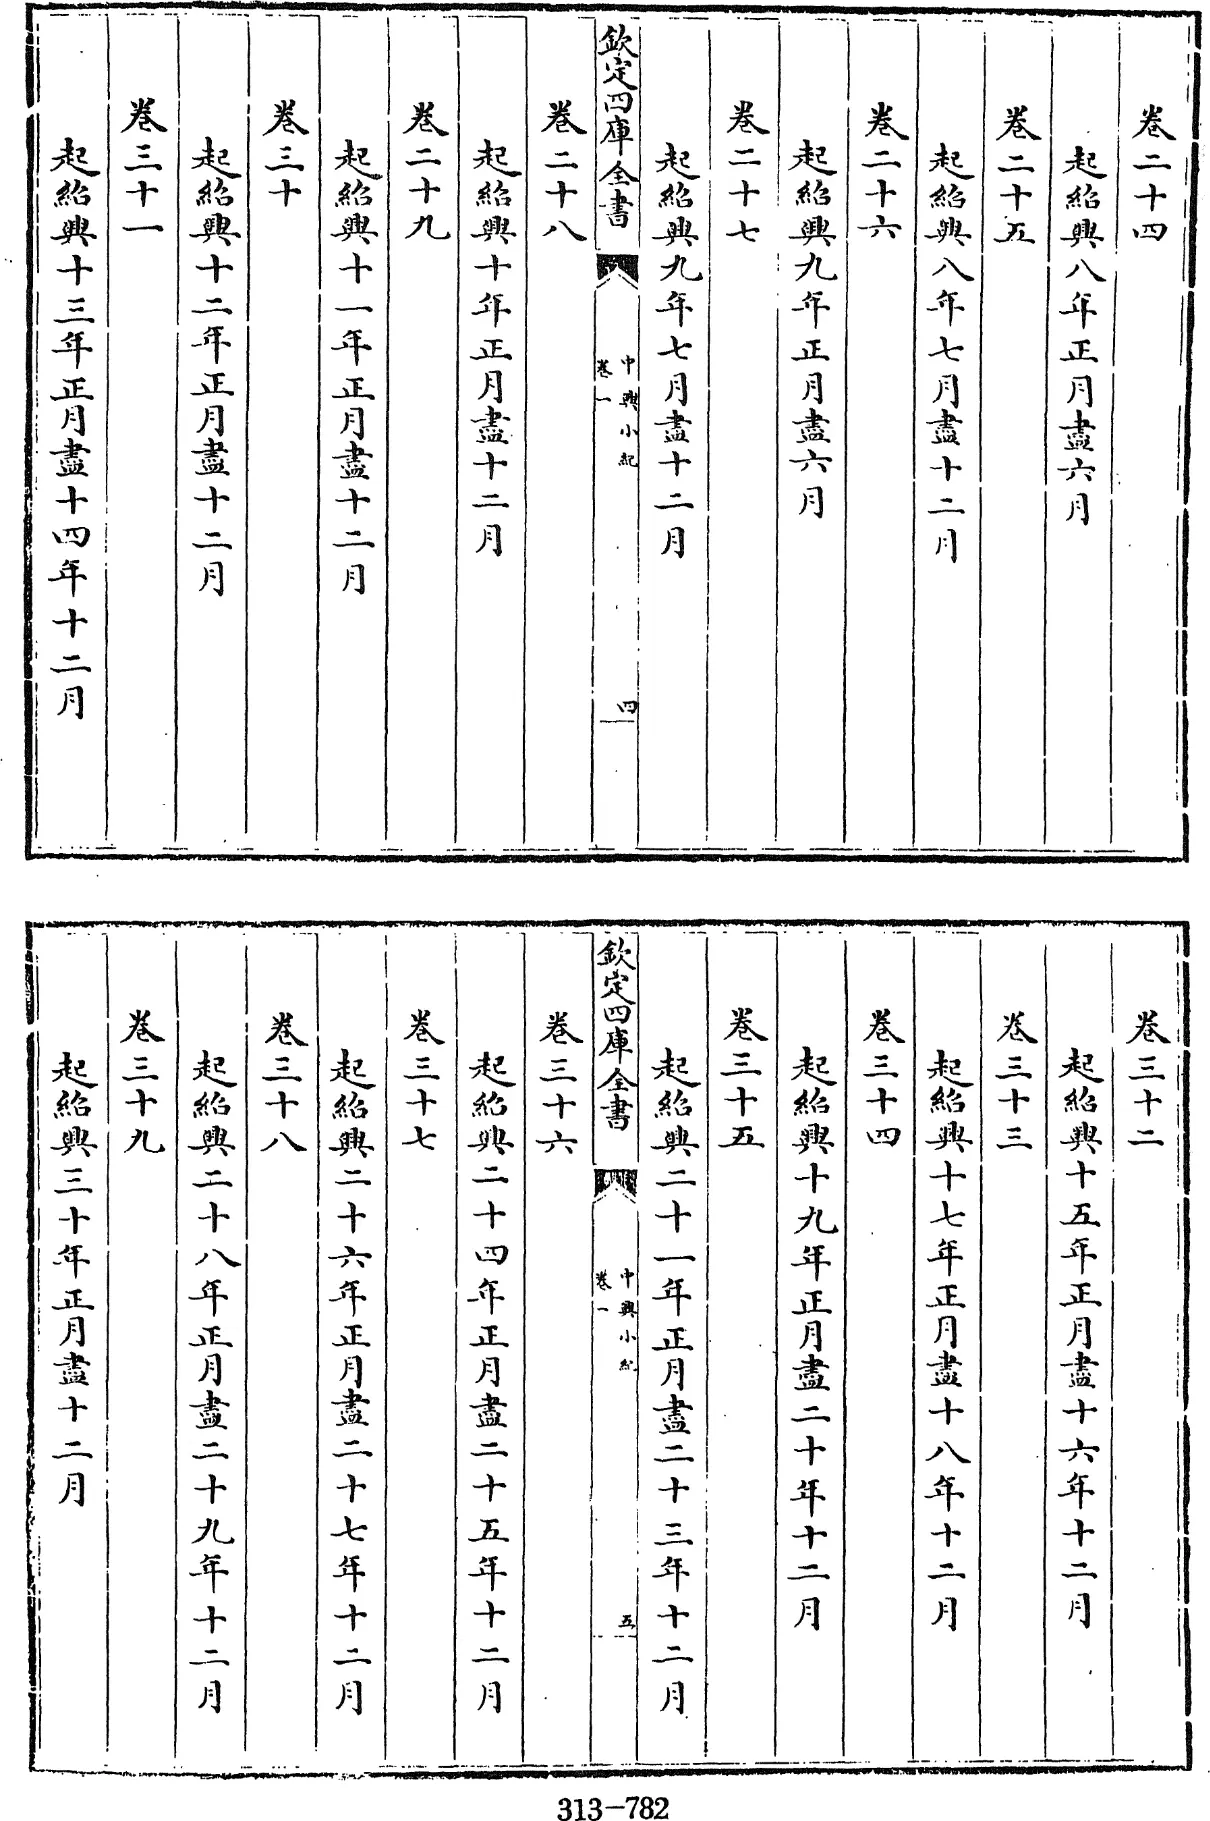 卷二十四
起紹興八年正月盡六月
卷二十五
起紹興八年七月盡十二月
卷二十六
起紹興九年正月盡六月
卷二十七
起紹興九年七月盡十二月
欽定四庫全書
中興小紀
卷一
四
卷二十八
起紹興十年正月盡十二月
卷二十九
起紹興十一年正月盡十二月
卷三十
起紹興十二年正月盡十二月
卷三十一
起紹興十三年正月盡十四年十二月
卷三十二
起紹興十五年正月盡十六年十二月
卷三十三
起紹興十七年正月盡十八年十二月
卷三十四
起紹興十九年正月盡二十年十二月
卷三十五
起紹興二十一年正月盡二十三年十二月
欽定四庫全書
中興小紀
卷一
五
卷三十六
起紹興二十四年正月盡二十五年十二月
卷三十七
起紹興二十六年正月盡二十七年十二月
卷三十八
起紹興二十八年正月盡二十九年十二月
卷三十九
起紹興三十年正月盡十二月
313-782